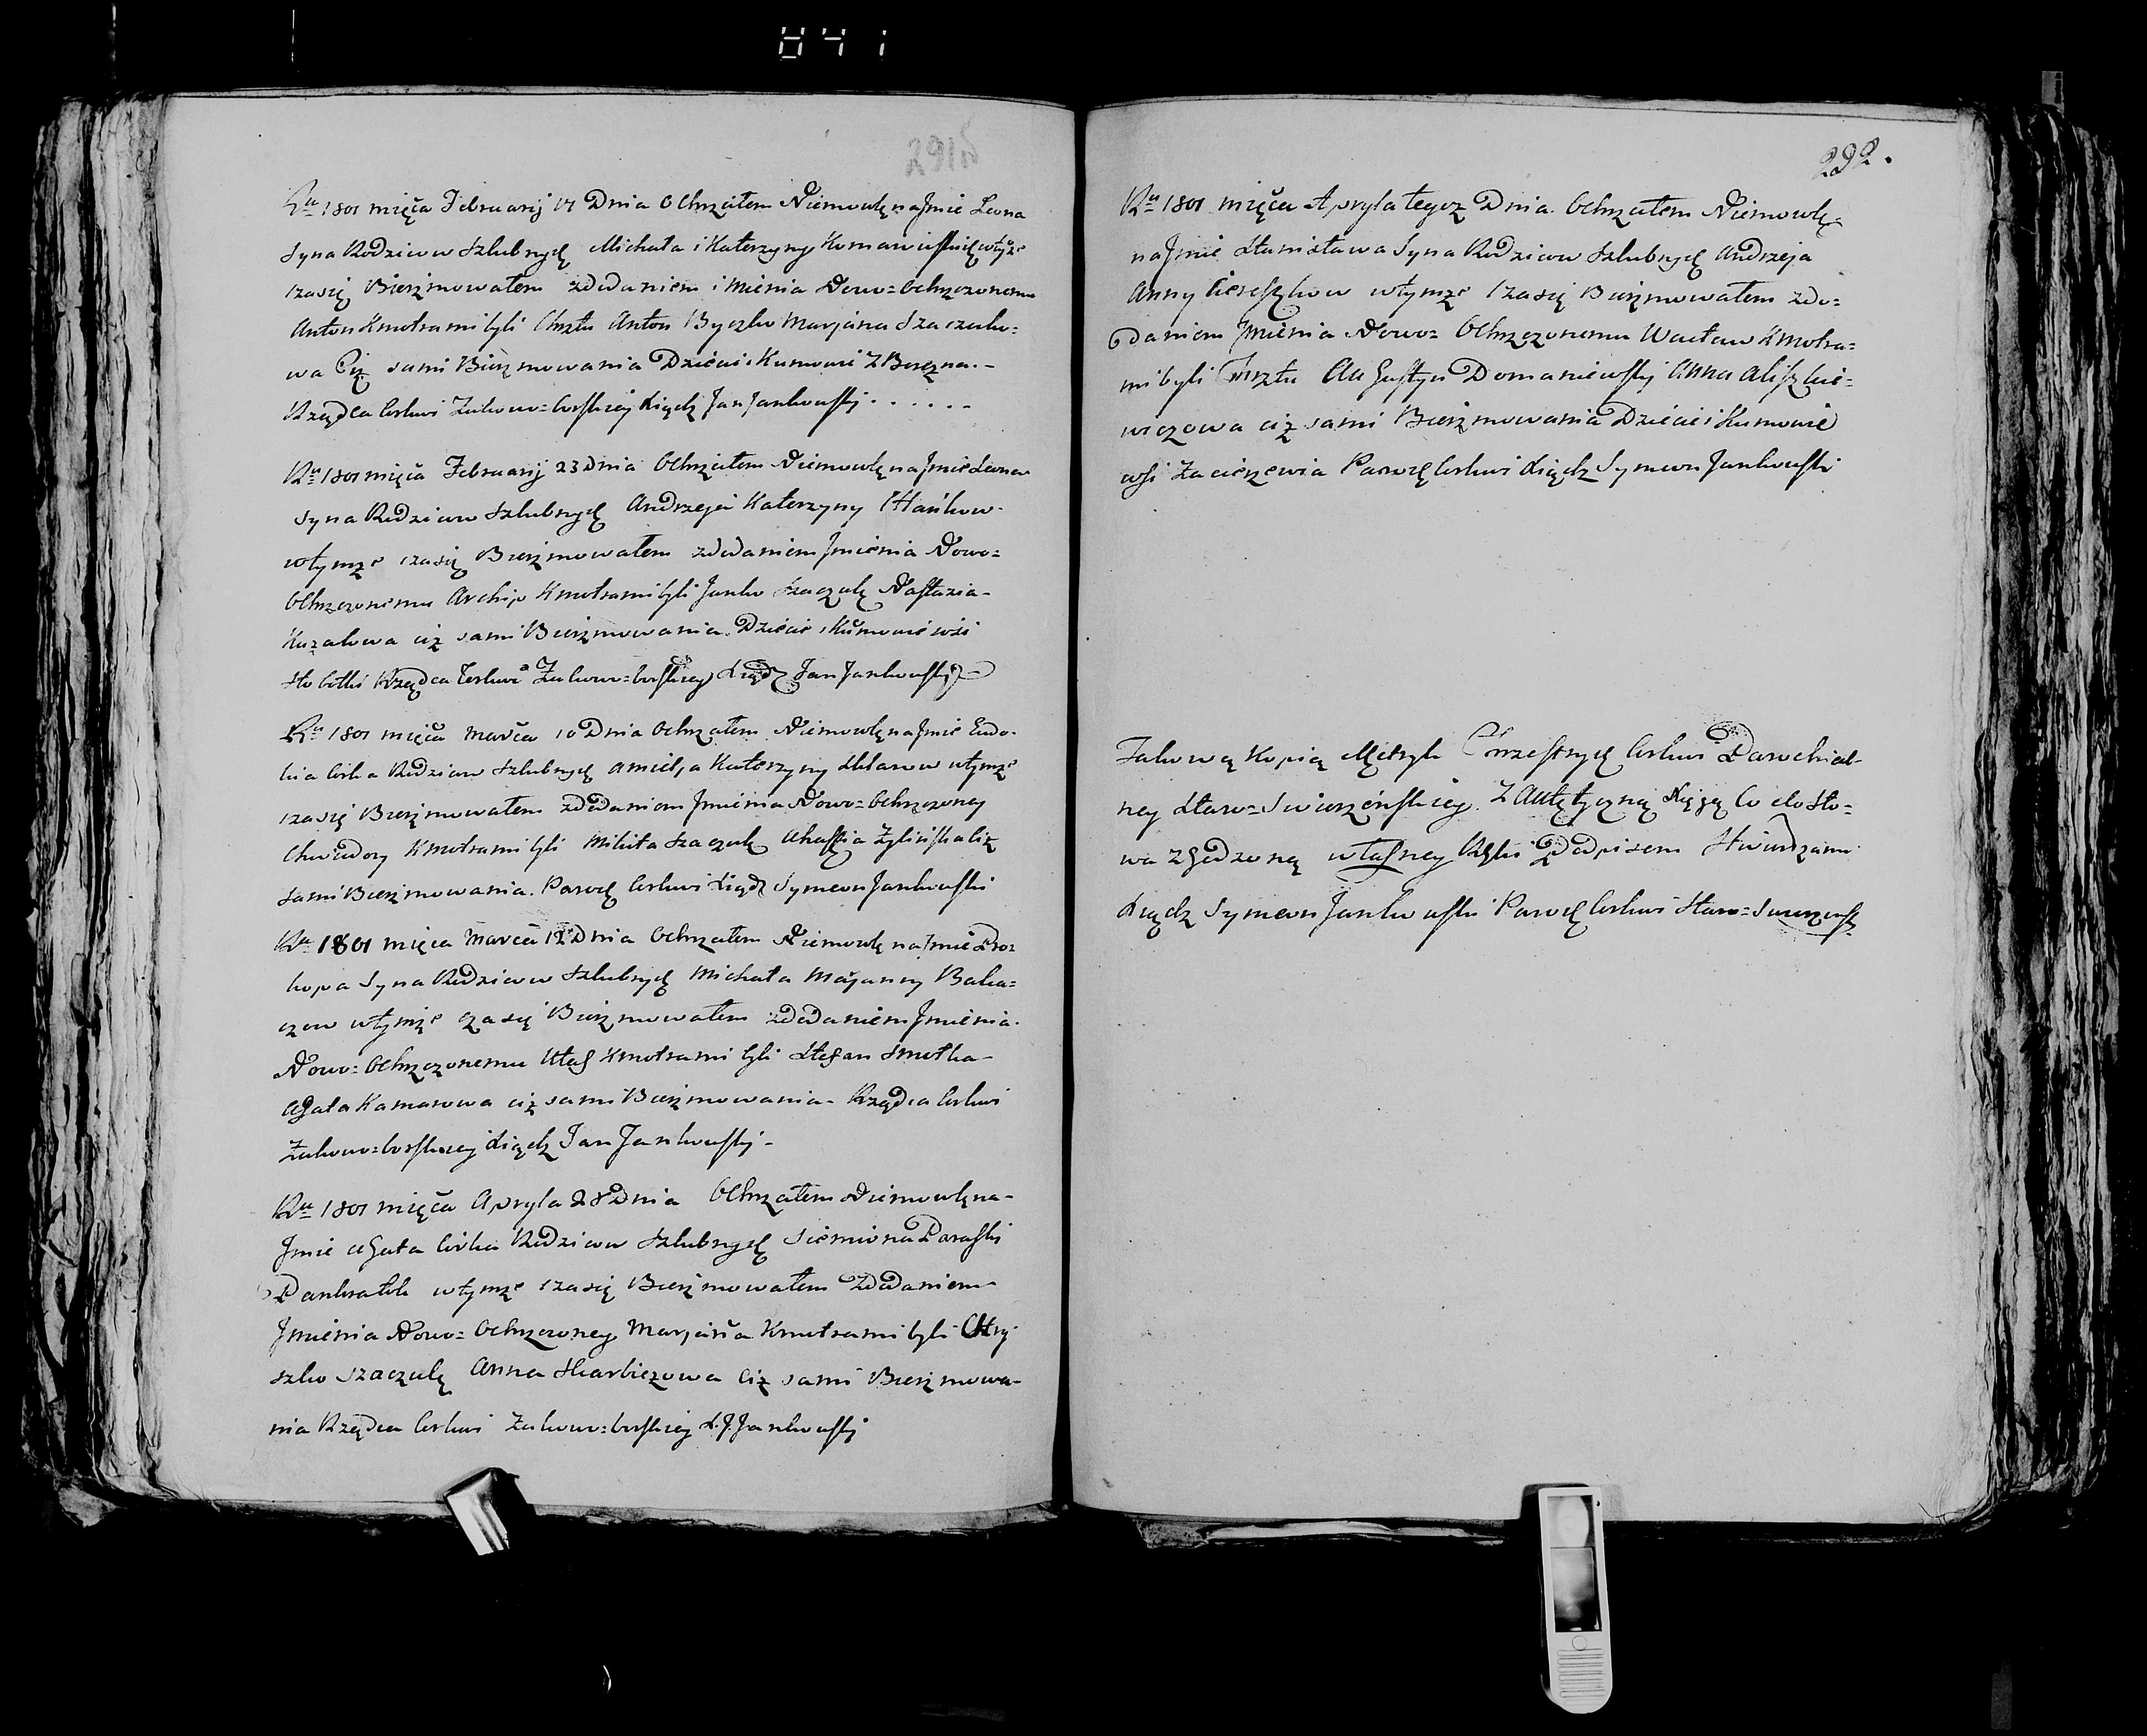 841
291
Ru 1801 mięca Februarij 17 Dnia Ochrzciłem Niemowlę na Jmie Leona
Syna Rodziców Szlubnych Michała i Katerzyny
czasię Bierzmowałem zdodaniem imienia Nowo=Ochrzczonemu
Anton Kmotrami byli Chrztu Anton Byczko Marjana Szaczuko=
wa Ciż sami Bierzmowania Dziecie i Kumowie Z Berezna.-
Rządca Cerkwi Zukowo=borskiej Xiądz Jan Jankowskj
Ru 1801 mięca Februarij 23 Dnia Ochrzciłem Niemowlę na Jmie Leona
Syna Rodziców Szlubnych Andrzeja Katerzyny
wtymże czasię Bierzmowałem zdodaniem Jmienia Nowo=
Ochrzczonemu Archip Kmotrami byli Janko Szaczuk Nastazia-
Kozakowa ciż sami Bierzmowania. Dziecie i Kumowie wsi
Słobotki Rządca Cerkwi Zukowo=borskiey Xiądz Jan Jankowskj
Ru 1801 mięca Marca 10 Dnia Ochrzciłem Niemowlę na Jmie Eudo-
kia Corka Rodziców Szlubnych Katerzyny wtymże
czasię Bierzmowałem zdodaniem Jmienia Nowo=Ochrzczoney
Kmotrami byli Mikita Szaczuk ciż
sami Bierzmowania. Paroch Cerkwi Xiądz Symeon Jankowski
Ru 1801 mięca Marca 12 Dnia Ochrzciłem Niemowlę na Jmie Pro=
kopa Syna Rodziców Szlubnych Michała Marjanny Baka=
czow wtymże czasię Bierzmowałem zdodaniem Jmienia
Nowo=Ochrzczonemu Kmotrami byli Stefan
Agata Kamarowa ciż sami Bierzmowania- Rządca Cerkwi
Zukowo=borskiej Xiądz Jan Jankowskj-
Ru 1801 mięca Apryla 28 Dnia Ochrzciłem Niemowlę na-
Jmie Agata Corka Rodziców Szlubnych Siemiona Paraski
Pankratow wtymże czasię Bierzmowałem Zdodaniem
Jmienia Nowo=Ochrzczoney Marjana Kmotrami byli Chry-
szko Szaczuk Anna Skarbiezowa Ciż sami Bierzmowa-
nia Rządca Cerkwi Zukowo=borskiej X. J. Jankowskj
292.
Ru 1801 mięca Apryla tegoż Dnia Ochrzciłem Niemowlę
na Jmie Stanisława Syna Rodziców Szlubnych Andrzeja
Anny wtymże czasię Bierzmowałem zdo=
daniem Jmienia Nowo=Ochrzczonemu Wacław Kmotra=
mi byli Chrztu Augustyn Domaniewskj Anna Aliszkie=
wiczowa ciż sami Bierzmowania Dziecie i Kumowie
wsi Zacieszewia Paroch Cerkwi Xiądz Symeon Jankowski
Takową Kopią Metryk Chrzestnych Cerkwi Parochial-
ney Staro=Swierzeńskiey. Z Autętyczną Xięgą Co do Sło=
wa zgodzoną własney Ręki Podpisem Stwierdzam
Xiądz Symeon Jankowski Paroch Cerkwi Staro=Swierzeńsk